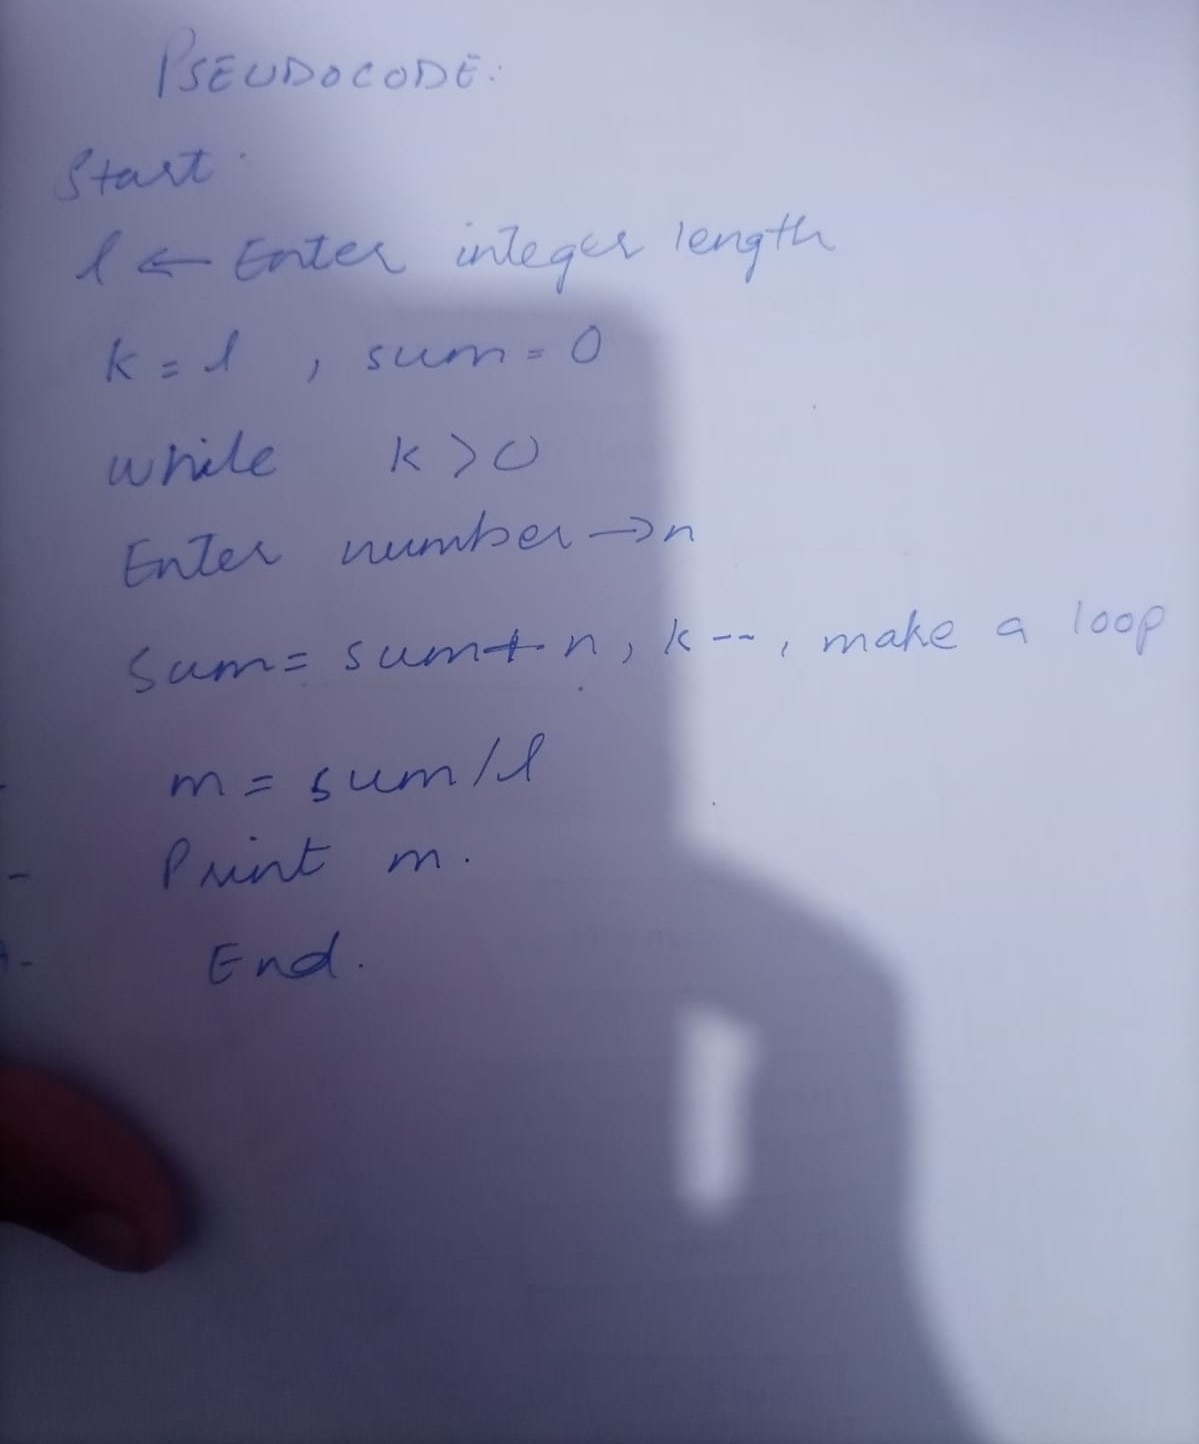 PSEUDOCODE:
Start.
l ← Enter integer length
k = l , sum = 0
while k > 0
Enter number → n
Sum = sum + n, k --, make a loop
m = sum / l
Print m.
End.